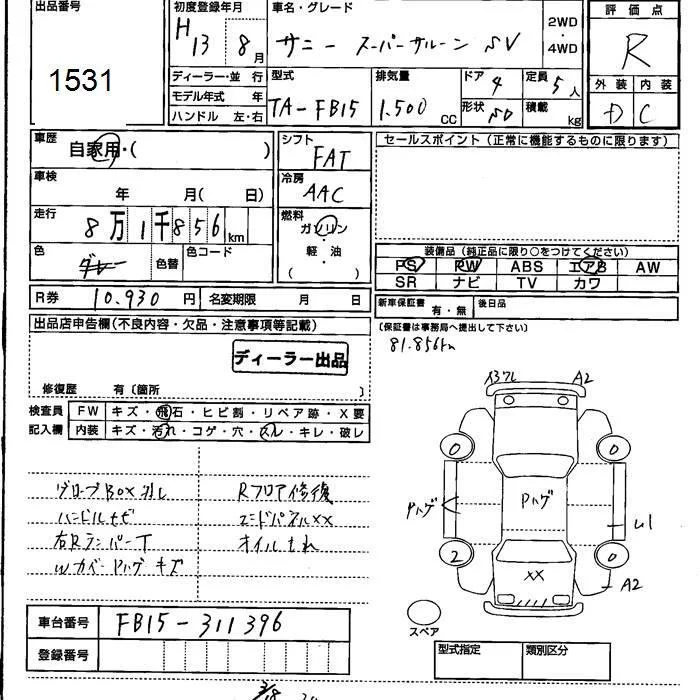 出品番号
1531
初度登録年月
H13 8月
車名・グレード
サニー スーパーサルーン SV
2WD
・
4WD
評価点
R
外装 内装
D C
ディーラー・並行
モデル年式 年
ハンドル 左・右
型式
TA-FB15
排気量
1.500 CC
ドア 4
形状 SD
定員 5人
積載 kg
車歴
自家用・( )
車検
年 月( 日)
走行
8万1千856km
色 グレー 色替 色コード
シフト
FAT
冷房
AAC
燃料
ガソリン
・
軽・油
( )
セールスポイント(正常に機能するものに限ります)
装備品(純正品に限り○をつけてください)
PS RW ABS エアB AW
SR ナビ TV カワ
R券 10.930円 名変期限 月 日
新車保証書 有・無 後日品
(保証書は事務局へ提出して下さい)
81.856km
出品店申告欄(不良内容・欠品・注意事項等記載)
ディーラー出品
修復歴 有〔箇所 〕
検査員 FW キズ・飛石・ヒビ割・リペア跡・X要
記入欄 内装 キズ・汚れ・コゲ・穴・スレ・キレ・破レ
グローブBOX消し Rフロア修復
エンドパネルXX
右Rランバー T オイルもれ
Wカバー Pハゲ キズ
A2
0 0
Pハゲ
Pハゲ
2 0
XX
A2
スペア
車台番号 FB15-311396
登録番号
型式指定 類別区分